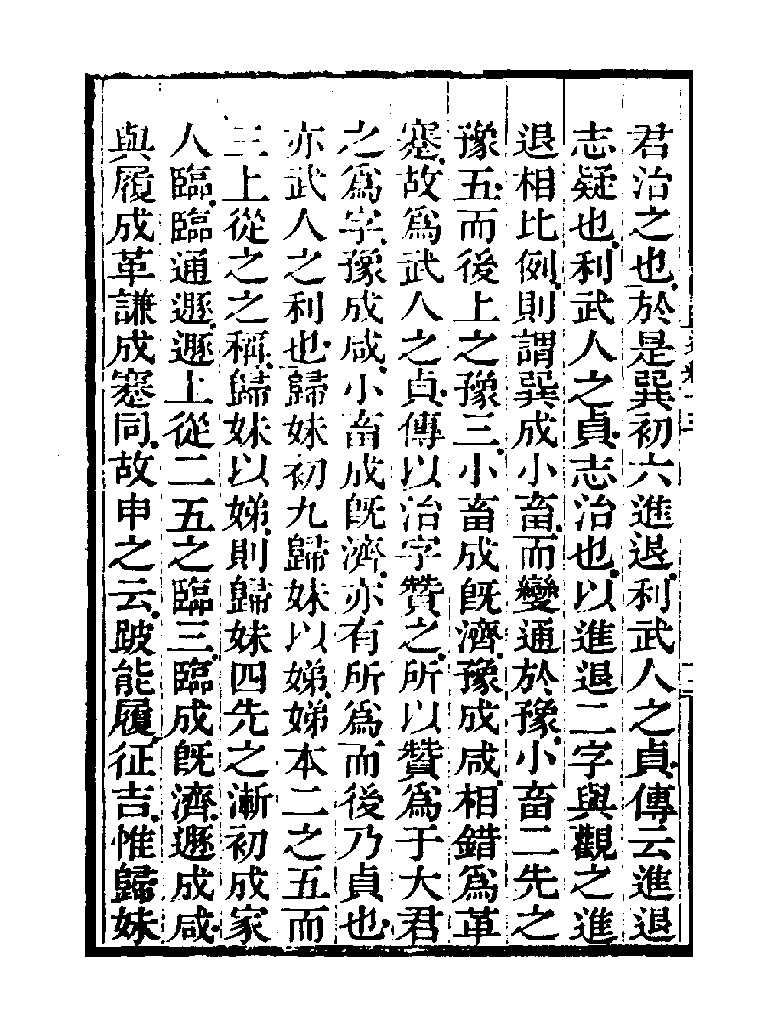 君治之也於是巽初六進退利武人之貞傳云進退
志疑也利武人之貞志治也以進退二字與觀之進
退相比例則謂巽成小畜而變通於豫小畜二先之
豫五而後上之豫三小畜成旣濟豫成咸相錯爲革
蹇故爲武人之貞傳以治字贊之所以贊爲于大君
之爲字豫成咸小畜成旣濟亦有所爲而後乃貞也
亦武人之利也歸妹初九歸妹以娣娣本二之五而
三上從之之稱歸妹以娣則歸妹四先之漸初成家
人臨臨通遯遯上從二五之臨三臨成旣濟遯成咸
與履成革謙成蹇同故申之云跛能履征吉惟歸妹